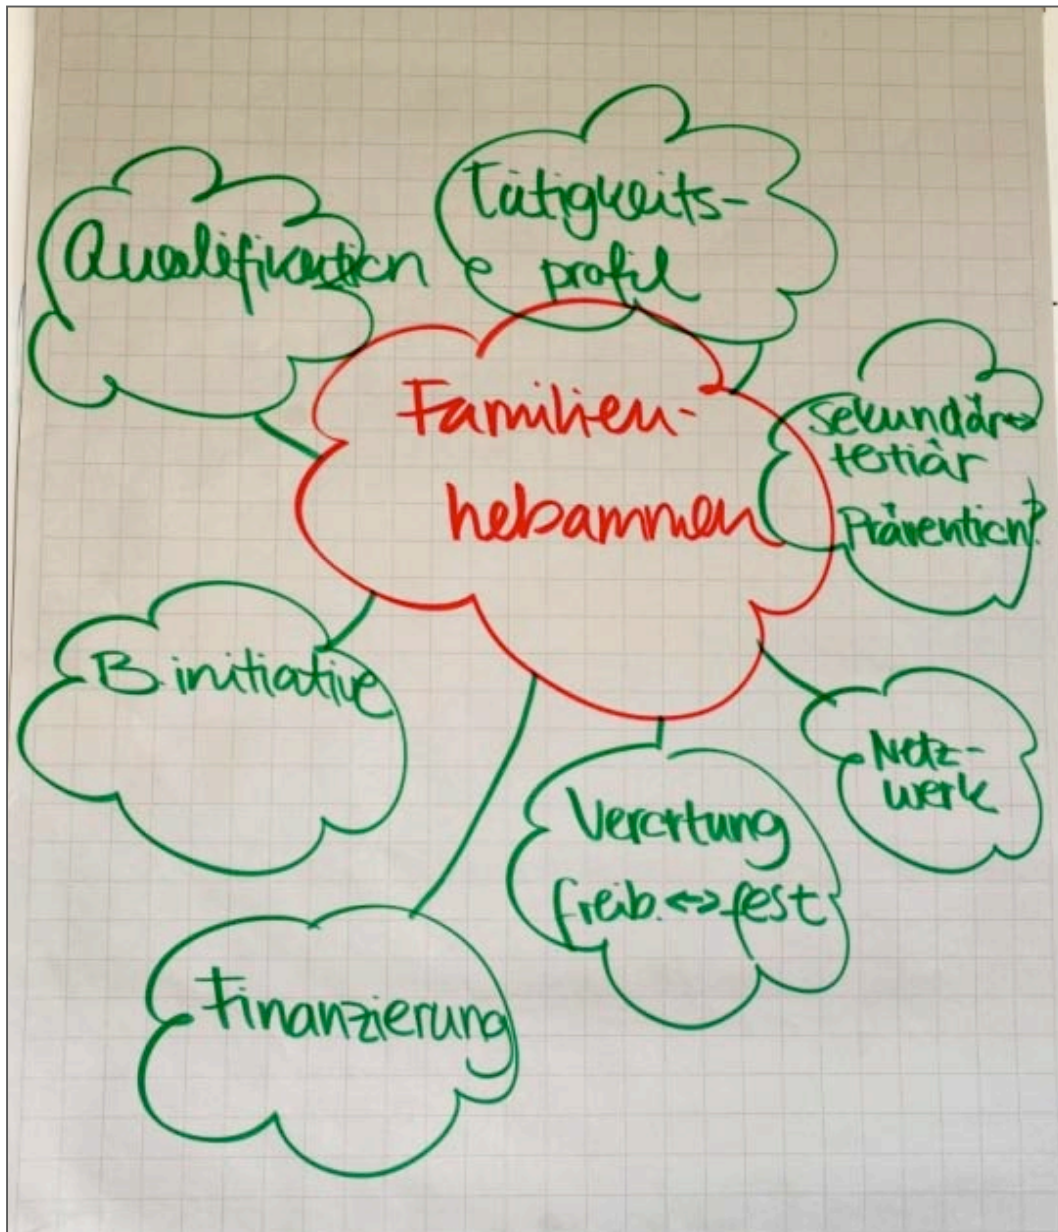 Qualifikation
Tätigkeits-
profil
Familien-
hebammen
Sekundär↔
tertiär
Prävention?
B.initiative
Netz-
werk
Verortung
freib.↔fest
Finanzierung